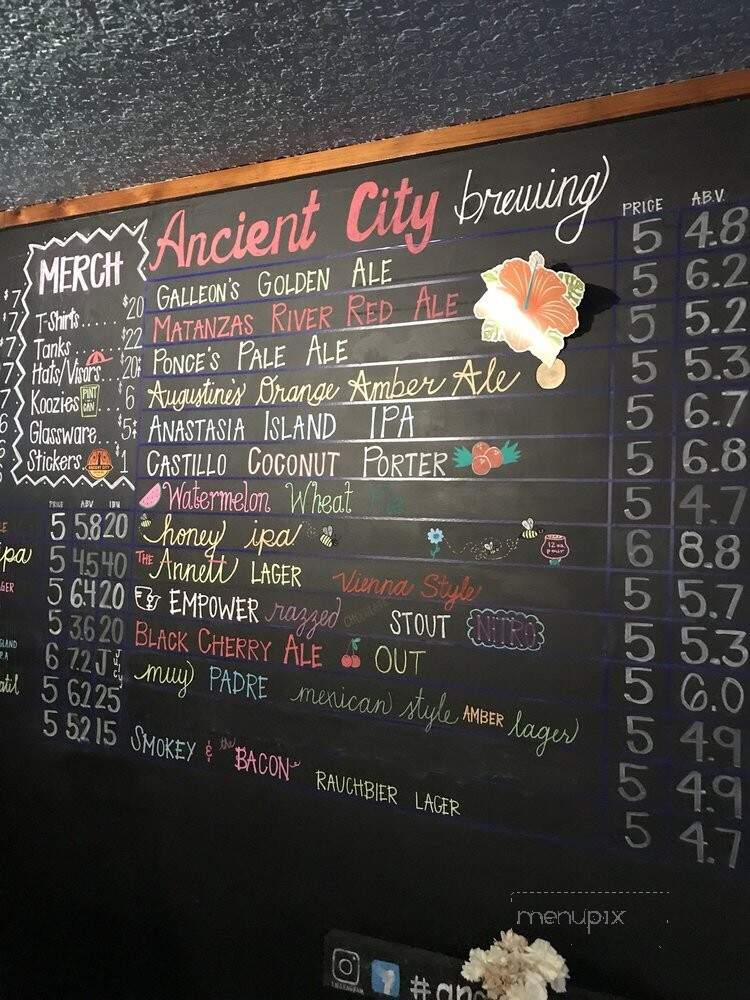 Ancient City brewing
PRICE A.B.V.
GALLEON'S GOLDEN ALE 5 4.8
MATANZAS RIVER RED ALE 5 6.2
PONCE'S PALE ALE 5 5.2
Augustine's Orange Amber Ale 5 5.3
ANASTASIA ISLAND IPA 5 6.7
CASTILLO COCONUT PORTER 5 6.8
Watermelon Wheat 5 4.7
honey ipa 12oz pour 6 8.8
THE Annett LAGER Vienna Style 5 5.7
EMPOWER razzed CHOCOLATE STOUT NITRO 5 5.3
BLACK CHERRY ALE OUT 5 6.0
muy PADRE mexican style AMBER lager 5 4.9
5 4.9
SMOKEY & the BACON RAUCHBIER LAGER 5 4.7
MERCH
T-Shirts.... $20
Tanks....... $22
Hats/Visors... $20+
Koozies PINT CAN $6
Glassware... $5+
Stickers. ANCIENT CITY $1
$7
PRICE ABV IBU
5 5.8 20
ipa 5 4.5 40
5 6.4 20
5 3.6 20
6 7.2 JUICY
5 6.2 25
5 5.2 15
menupix
INSTAGRAM f #an